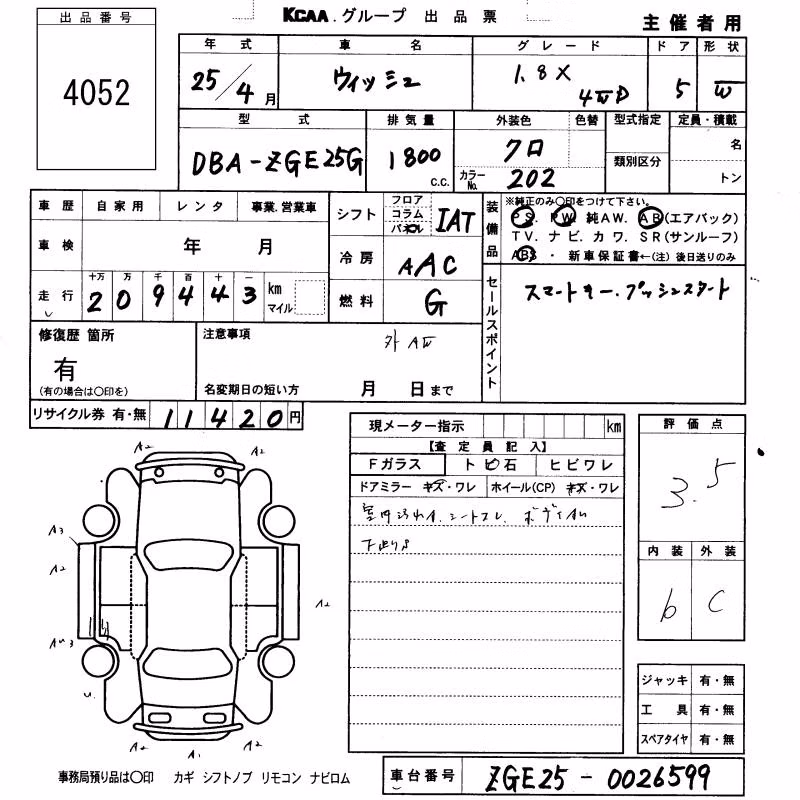 出品番号
4052
KCAA.グループ 出品票
主催者用
年式 車名 グレード ドア 形状
25/4月 ウィッシュ 1.8X 4WD 5 W
型式 排気量 外装色 色替 型式指定 定員・積載
DBA-ZGE25G 1800 c.c. クロ 類別区分 名
カラーNo. 202 トン
車歴 自家用 レンタ 事業.営業車
車検 年 月
走行 十万 万 千 百 十 一
209443 km マイル
シフト フロア コラム パネル IAT
冷房 AAC
燃料 G
装備品
※純正のみ〇印をつけて下さい。
PS. PW 純AW. AB(エアバック)
TV. ナビ. カワ. SR(サンルーフ)
ABS ・ 新車保証書←(注) 後日送りのみ
セールスポイント
スマートキー.プッシュスタート
修復歴 箇所
有
(有の場合は〇印を)
注意事項
外AW
名変期日の短い方 月 日まで
リサイクル券 有・無 11420円
現メーター指示 km
【査定員記入】
Fガラス トビ石 ヒビワレ
ドアミラー キズ・ワレ ホイール(CP) キズ・ワレ
室内汚れA.シートスレ. ボディAU
下廻りS
評価点
3.5
内装 外装
b C
A2 A2
A3
A2
A2
AW3
U.
A2 A1 A2
ジャッキ 有・無
工具 有・無
スペアタイヤ 有・無
事務局預り品は〇印 カギ シフトノブ リモコン ナビロム
車台番号 ZGE25-0026599